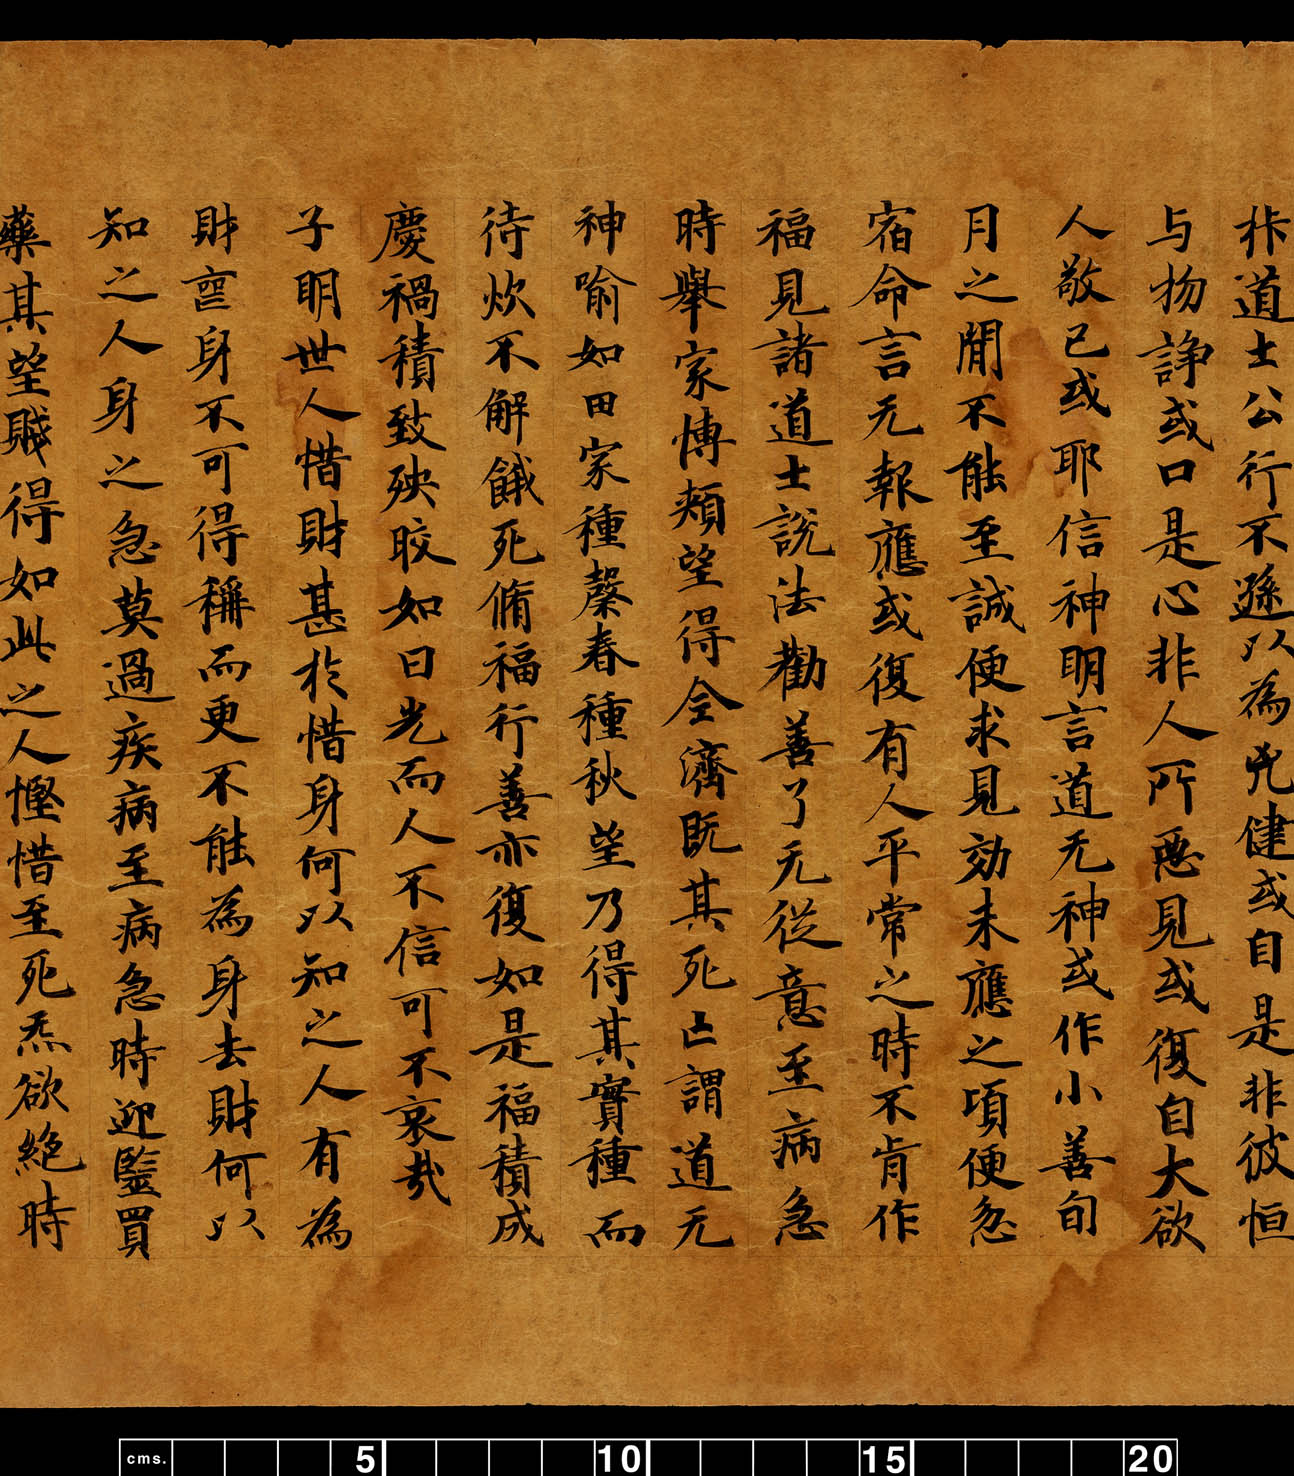 道士公行不遜以為光健或自是非彼恒
与物諍或口是心非人所惡見或復自大欲
人敬已或耶信神明言道无神或作小善旬
月之閒不能至誠便求見効未應之頃便怱
宿命言无報應或復有人平常之時不肯作
福見諸道士說法勸善了无從意至病急
時舉家慱頰望得全濟既其死亡謂道无
神喻如田家種䅽春種秋望乃得其實種而
待炊不解餓死脩福行善亦復如是福積成
慶禍積致殃晈如日光而人不信可不哀㢤
子明世人惜財甚於惜身何以知之人有為
財䘮身不可得稱而更不能為身去財何以
知之人身之急莫過疾病至病急時迎毉買
藥其望賤得如此之人慳惜至死炁欲絕時
5 10 15 20
cms.